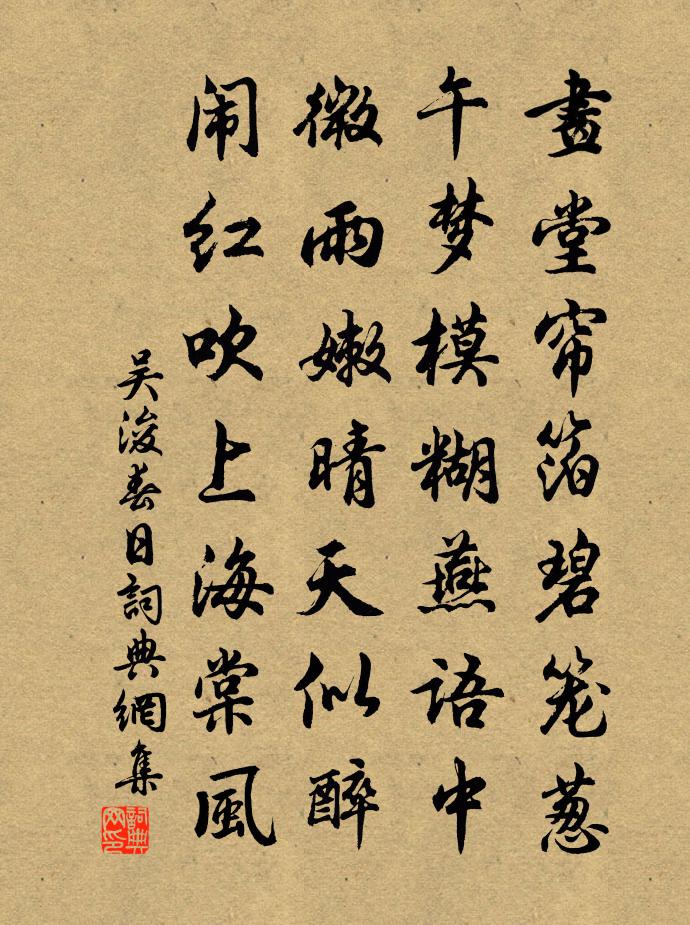 畫堂帘箔碧笼葱
午梦模糊燕语中
微雨嫩晴天似醉
闹红吹上海棠風
吴浚春日詞典網集
詞典网印